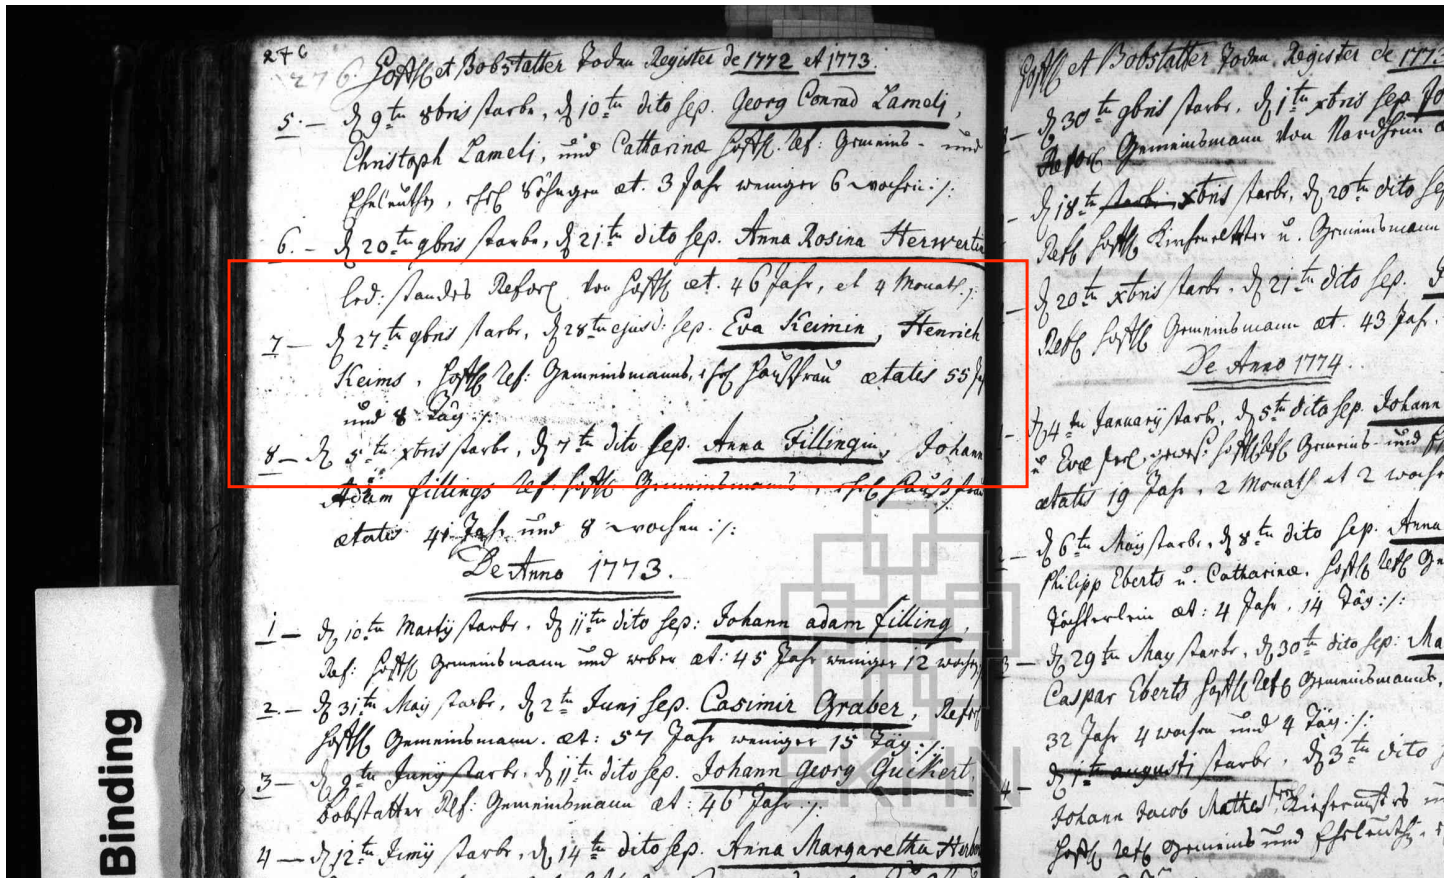 276
276. Hofh. et Bobstatter Todten Register de 1772 et 1773.
5. — d. 9ten 8bris starbe, d. 10ten dito sep. Georg Conrad Lamely,
Christoph Lamely, und Catharinæ Hofh. Ref: Gemeins- und
Eheleuthe, ehel. Söhngen æt. 3 Jahr weniger 6 wochen :/:
6. — d. 20ten 9bris starbe, d. 21ten dito sep. Anna Rosina Herwertin
led: standes Reform. von Hofh. æt. 46 Jahr, et 4 Monath :/:
7 — d. 27ten 9bris starbe, d. 28ten ejusd: sep. Eva Keimin, Henrich
Keims, Hofh. Ref: Gemeinsmanns, ehel. Haußfrau ætatis 55 J
und 8 Täg :/:
8 — d. 5ten xbris starbe, d. 7ten dito sep. Anna Fillingin, Johann
Adam Fillings Ref. Hofh. Gemeinsmanns, ehel. Haußfrau
ætatis 41 Jahr und 8 wochen :/:
De Anno 1773.
1 — d. 10ten Martÿ starbe, d. 11ten dito sep: Johann adam filling,
Ref: Hofh. Gemeinsmann und weber æt: 45 Jahr weniger 12 wochen
2. — d. 31ten Maÿ starbe, d. 2ten Junj sep. Casimir Graber, Ref
Hofh. Gemeinsmann. æt: 57 Jahr weniger 15 Täg :/:
3 — d. 9ten Junÿ starbe, d. 11ten dito sep. Johann Georg Guckert
Bobstatter Ref: Gemeinsmann æt: 46 Jahr :/:
4 — d. 12ten Junÿ starbe, d. 14ten dito sep. Anna Margaretha
Hofh. et Bobstatter Todten Register de 1773
— d. 30ten 9bris starbe, d. 1ten xbris sep. Jo
Gemeinsmann von Nordheim
— d. 18ten xbris starbe, d. 20ten dito se
Ref. Hofh. u. Gemeinsmann
— d. 20ten xbris starbe, d. 21ten dito sep.
Ref. Hofh. Gemeinsmann æt. 43 Jahr.
De Anno 1774.
1 — d. 4ten Januarÿ starbe, d. 5ten dito sep. Johann
u. Evæ Hofh. Ref. Gemeins- und
ætatis 19 Jahr, 2 Monath et 2 woche
2 — d. 6ten Maÿ starbe, d. 8ten dito sep. Anna
Philipp Eberts u. Catharinæ, Hofh. Ref. Ge
Töchterlein æt: 4 Jahr, 14 Täg :/:
3 — d. 29ten May starbe, d. 30ten dito sep: Ma
Caspar Eberts Hofh. Ref. Gemeinsmanns,
32 Jahr 4 wochen und 4 Täg :/:
4 — d. 1ten augusti starbe, d. 3ten dito
Johann Jacob Mathes
Hofh. Ref. Gemeins und Eheleuthe,
Binding
EKHN